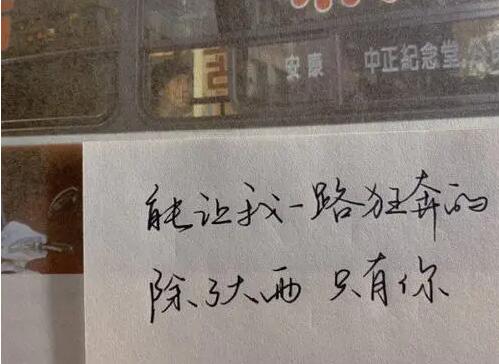 安康 中正紀念堂
能让我一路狂奔的
除了大雨 只有你